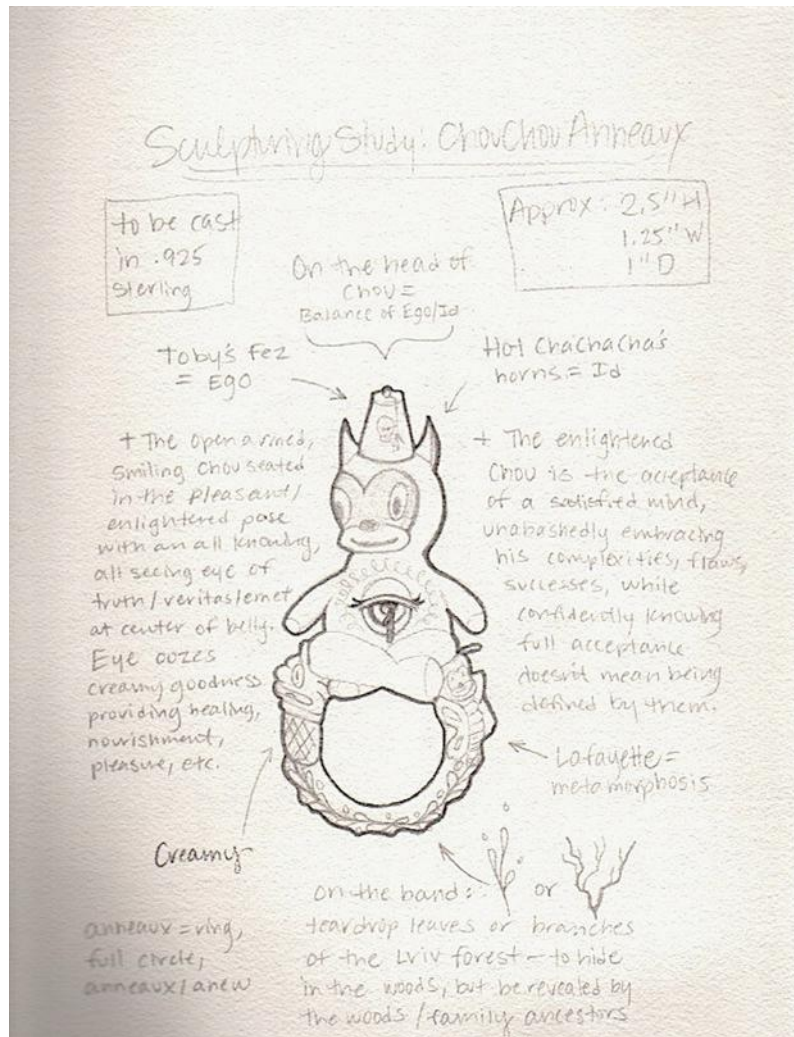 Sculpturing Study: ChouChou Anneaux
to be cast
in .925
sterling
Approx: 2.5" H
1.25" W
1" D
On the head of
Chou =
Balance of Ego/Id
Toby's Fez
= Ego
Hot Chachacha's
horns = Id
+ The open armed,
smiling Chou seated
in the pleasant/
enlightened pose
with an all knowing,
all seeing eye of
truth/veritas/emet
at center of belly.
Eye oozes
creamy goodness
providing healing,
nourishment,
pleasure, etc.
+ The enlightened
Chou is the acceptance
of a satisfied mind,
unabashedly embracing
his complexities, flaws,
successes, while
confidently knowing
full acceptance
doesn't mean being
defined by them.
Lafayette =
metamorphosis
Creamy
on the band: or
teardrop leaves or branches
of the Lviv forest – to hide
in the woods, but be revealed by
the woods / family ancestors
anneaux = ring,
full circle,
anneaux/anew